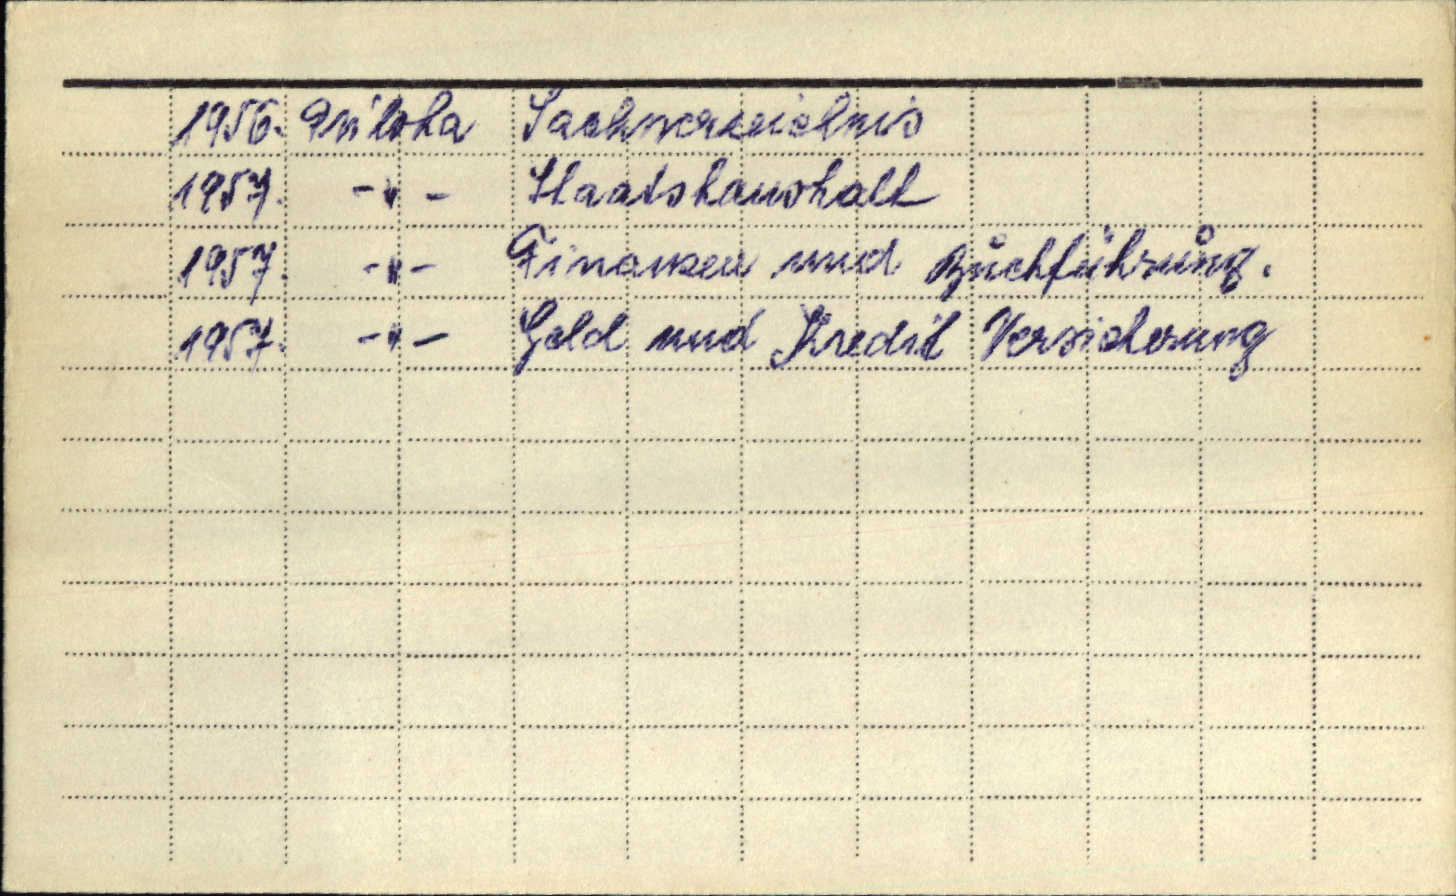 1956. Sachverzeichnis
1957. -"- Staatshaushalt
1957. -"- Finanzen und Buchführung.
1957. -"- Geld und Kredit Versicherung